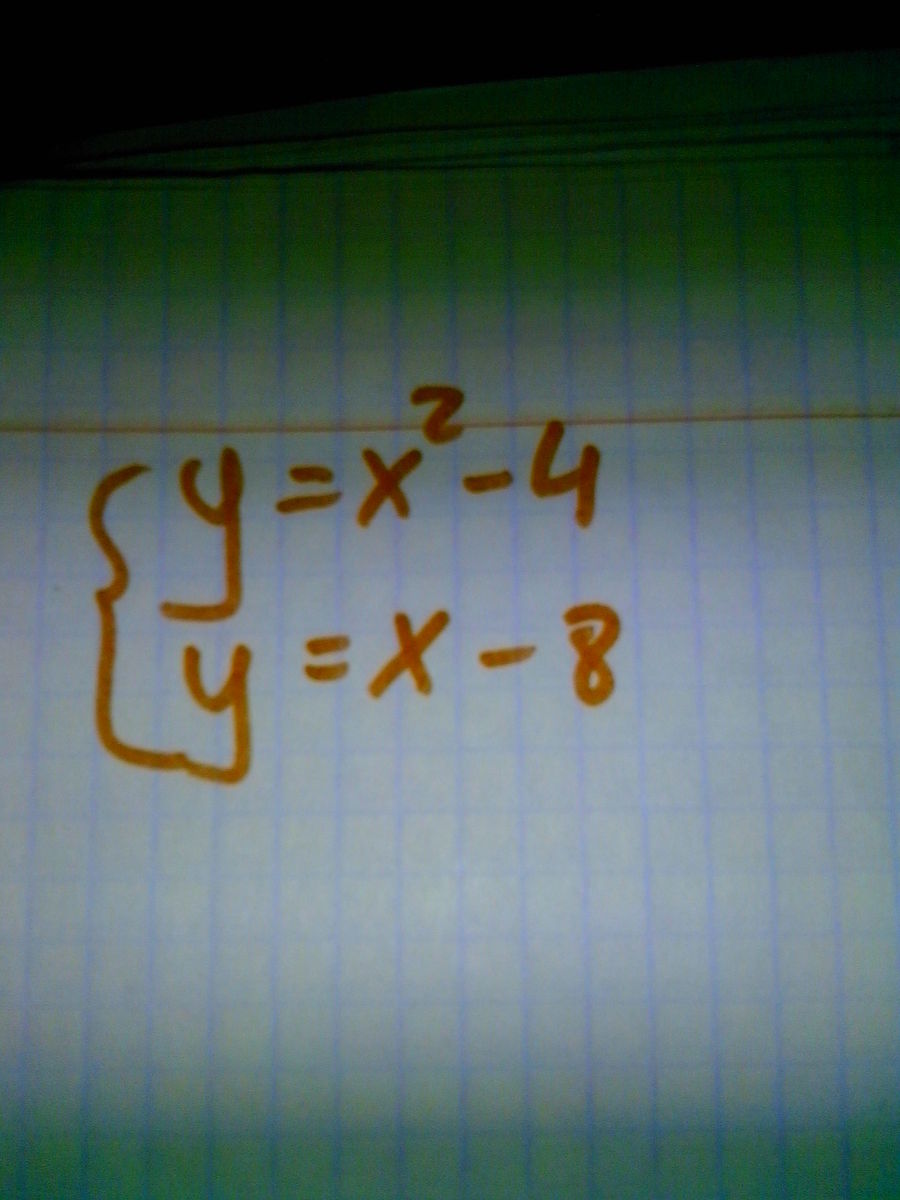 y = x² - 4
y = x - 8